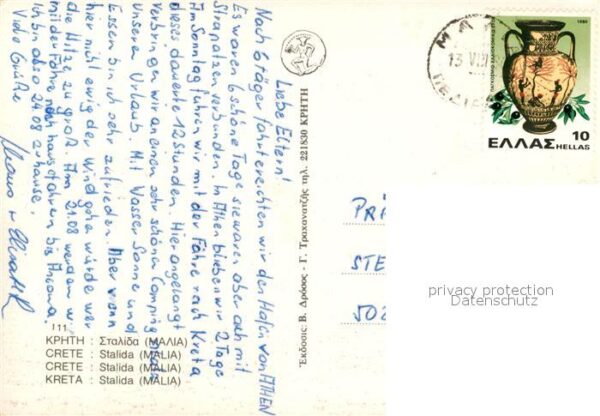 Liebe Eltern!
Nach 6 täger fahrt erreichten wir den Hafen von ATHEN
Es waren 6 schöne Tage sie waren aber auch mit
Strapatien verbunden. In Athen blieben wir 2 Tage
Am Sonntag fuhren wir mit der Fähre nach Kreta
dieses dauerte 12 Stunden. Hier angelangt
verbringen wir an einen sehr schönen Camping
Unseren Urlaub. Mit Wasser Sonne und
Essen bin ich sehr zufrieden. Aber wenn
hier nicht ewig der Wind gehe würde wär
die Hitze zu groß. Am 21.08 werden wir
mit der Fähre nach haus fahren bis Ancona.
Ich bin also 24.08 zuhause.
Viele Grüße
111
ΚΡΗΤΗ : Σταλίδα (ΜΑΛΙΑ)
CRETE : Stalida (MALIA)
CRETE : Stalida (MALIA)
KRETA : Stalida (MALIA)
Έκδοσις: Β. Δρόσος - Γ. Τραχανατζής τηλ. 221830 ΚΡΗΤΗ
1980
10
ΕΛΛΑΣ HELLAS
ΜΑΛ
13 VIII
PRÄ
STE
502
privacy protection
Datenschutz